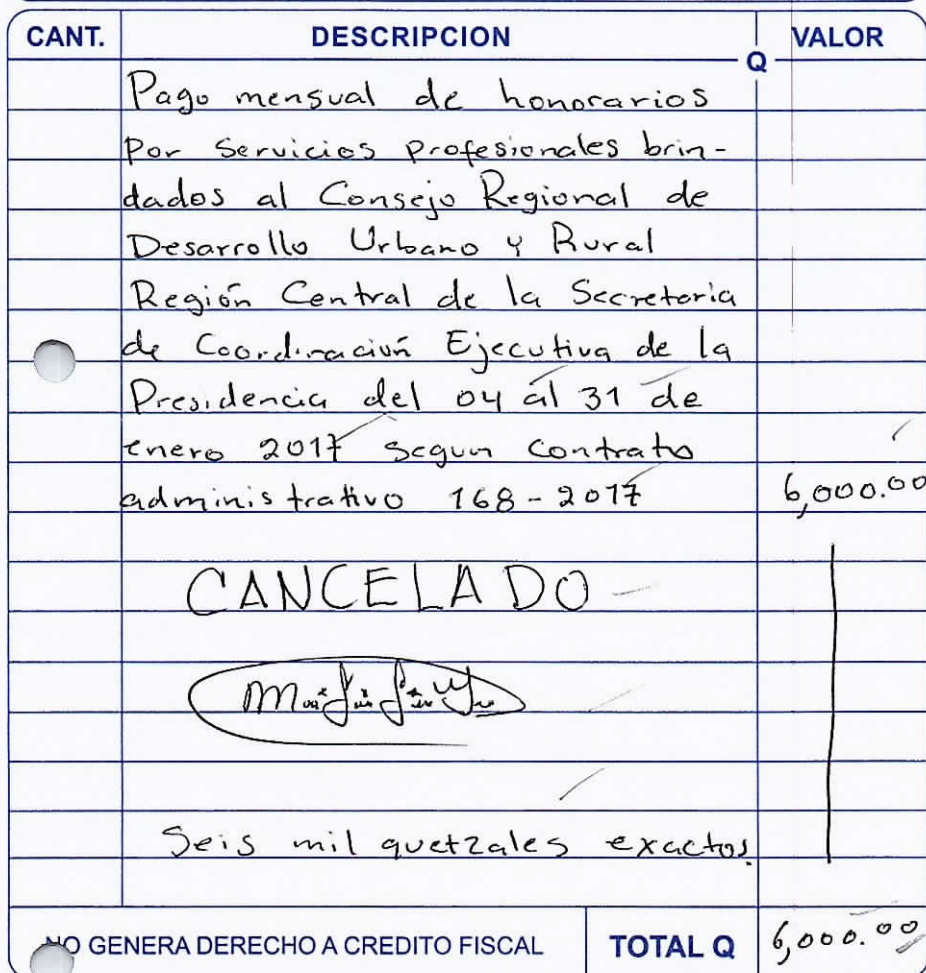 CANT. DESCRIPCION VALOR
Q
Pago mensual de honorarios
por Servicios profesionales brin-
dados al Consejo Regional de
Desarrollo Urbano y Rural
Región Central de la Secretaria
de Coordinación Ejecutiva de la
Presidencia del 04 al 31 de
enero 2017 segun contrato
administrativo 168-2017 6,000.00
CANCELADO
Seis mil quetzales exactos.
NO GENERA DERECHO A CREDITO FISCAL TOTAL Q 6,000.00